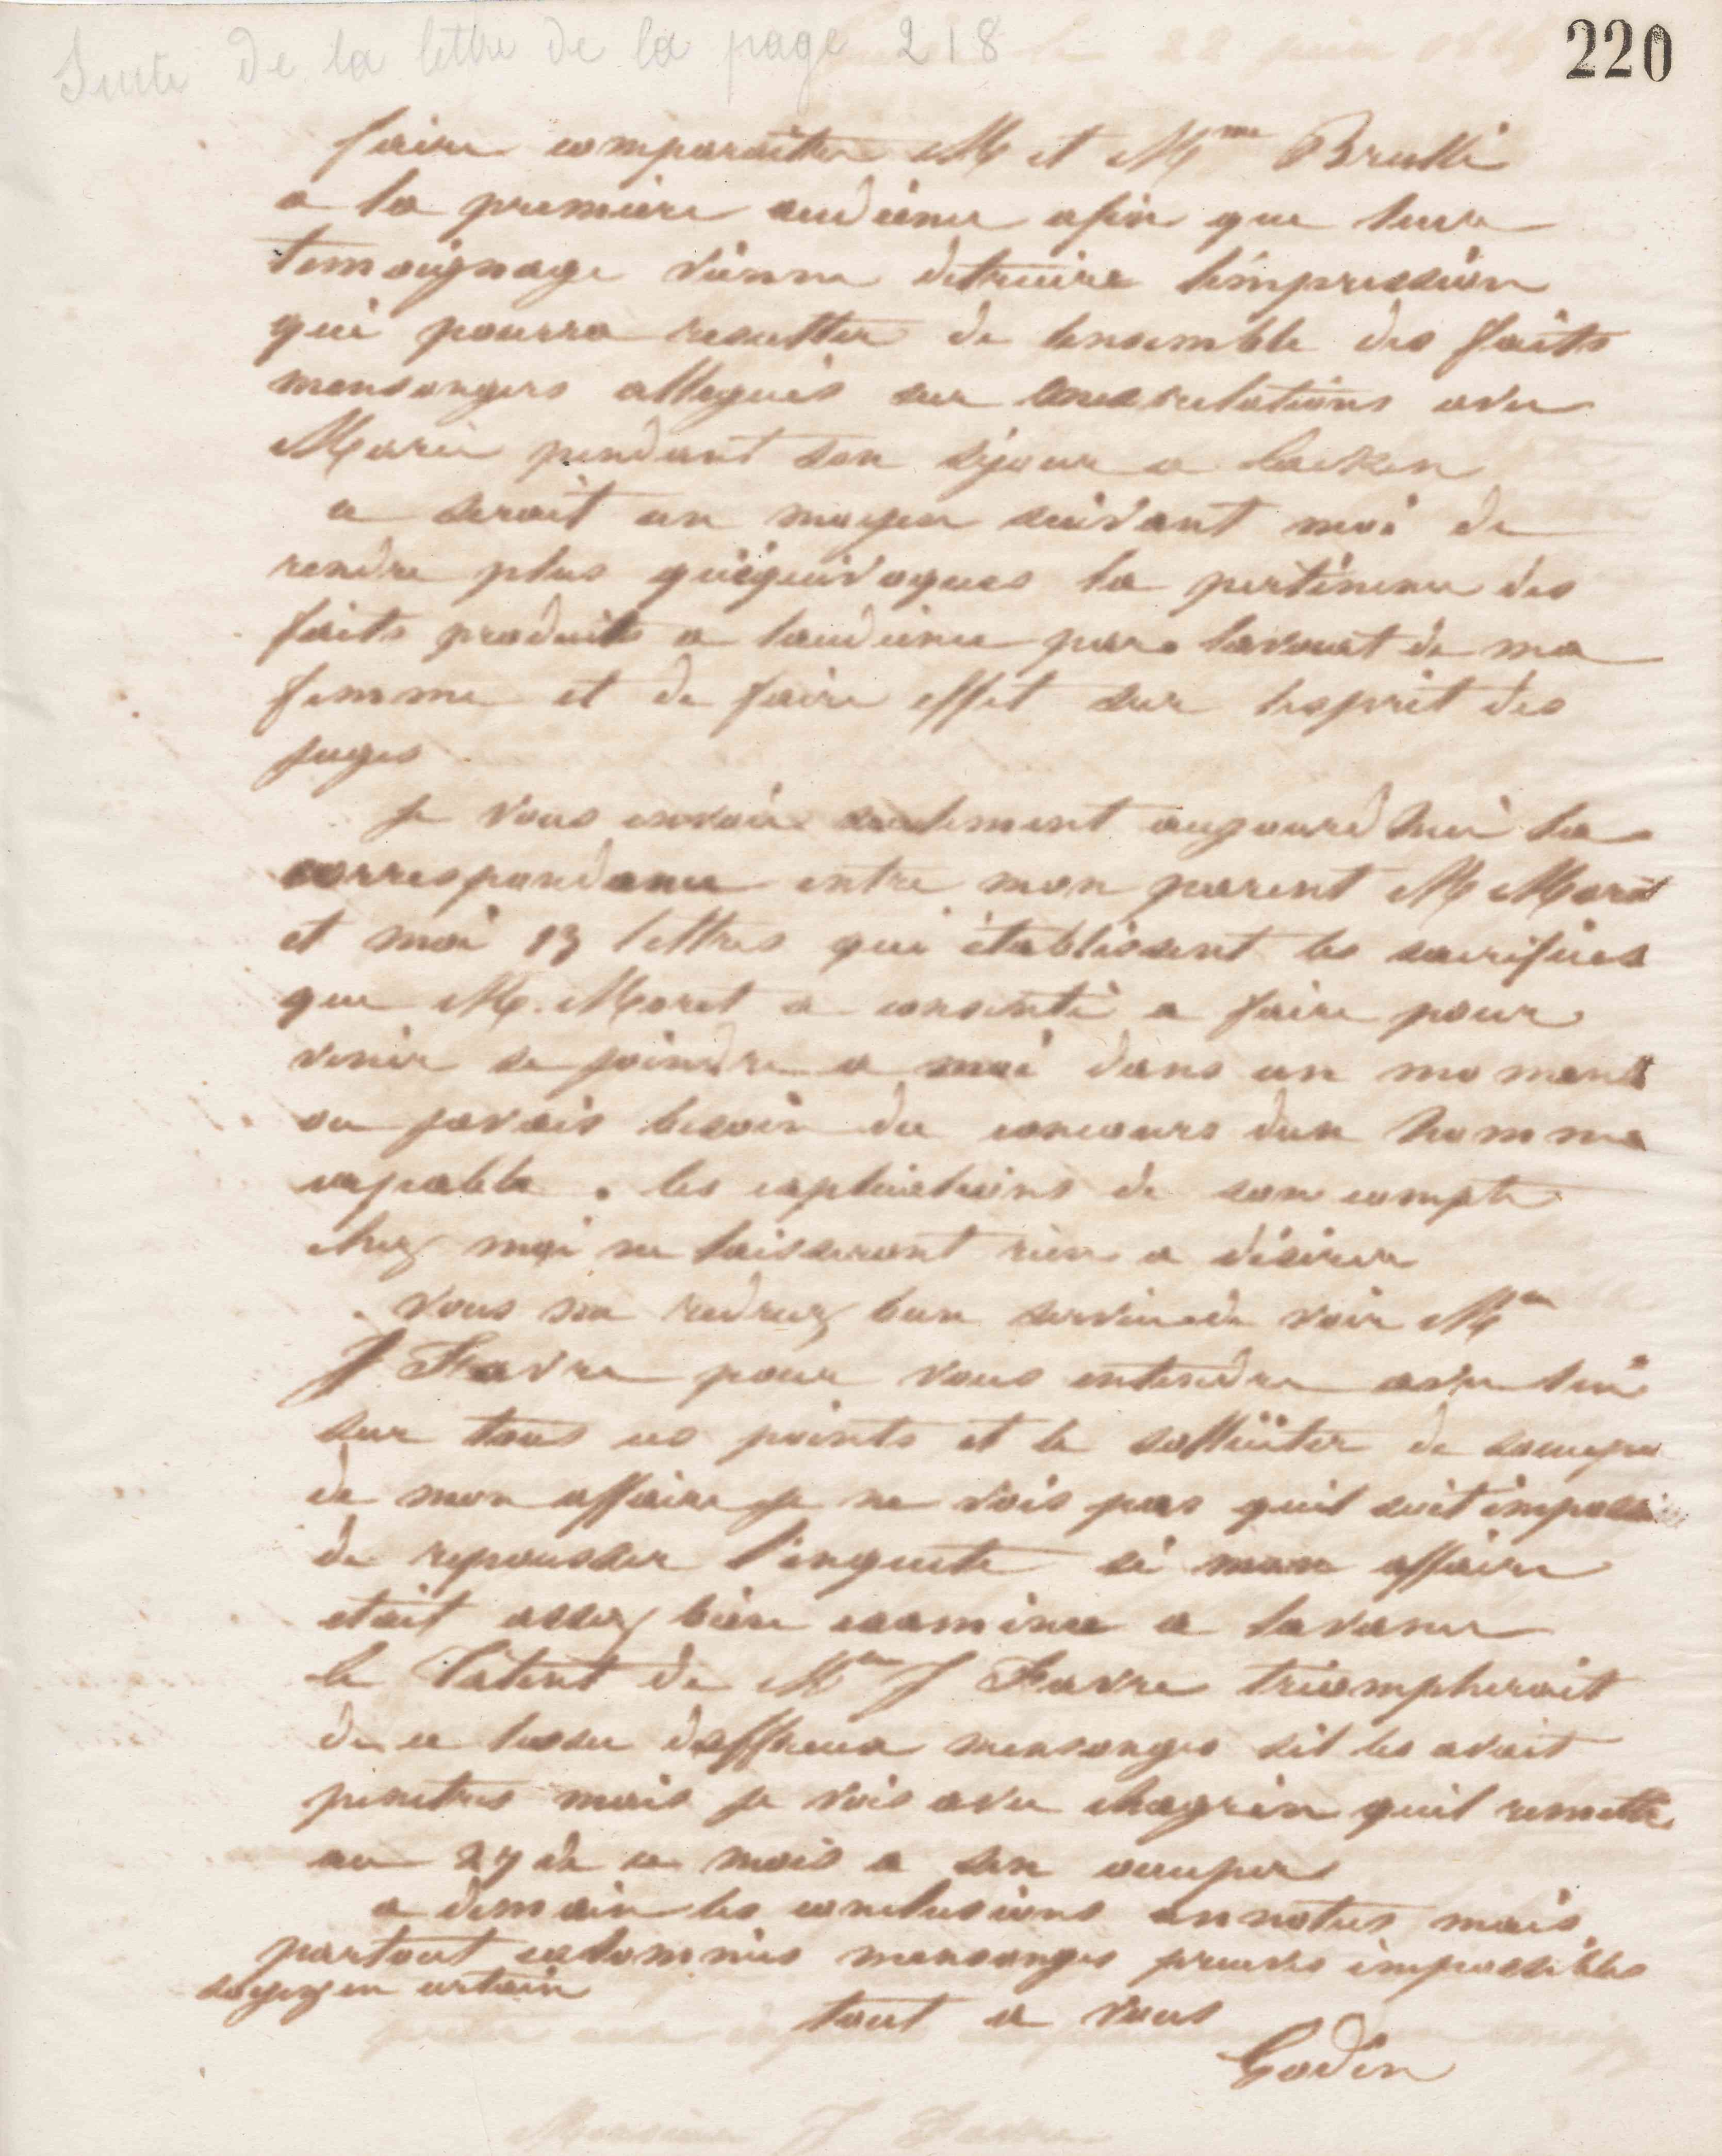 Suite de la lettre de la page 218
220
faire comparaitre M et Mme Brullé
a la premiere audience afin que leur
temoignage vienne detruire l'impression
qui pourra resulter de lensemble des faits
mensongers allegués sur mes relations avec
Marie pendant son séjour a Laeken
ce serait un moyen suivant moi de
rendre plus qu'équivoques la pertinence des
faits produits a laudience par lavocat de ma
femme et de faire effet sur lesprit des
juges
je vous envoie seulement aujourdhui la
correspondance entre mon parent M Moret
et moi 13 lettres qui établissent les sacrifices
que M. Moret a consenti a faire pour
venir se joindre a moi dans un moment
ou javais besoin du concours dun homme
capable. les explications de son compte
chez moi ne laisseront rien a désirer
vous me redrez bun service de voir Me
J Favre pour vous entendre avec lui
sur tous ces points et le solliciter de soccuper
de mon affaire je ne vois pas quil soit impossi
de repousser l'enquete si mon affaire
etait assez bien examinee a lavance
le talent de Me J Favre triompherait
de ce tissu daffreux mensonges sil les avait
penetres mais je vois avec chagrin quil remette
au 27 de ce mois a sen occuper
a demain les conclusions annotees mais
partout calomnies mensonges preuves impossibles
soyez en certain
tout a vous
Godin